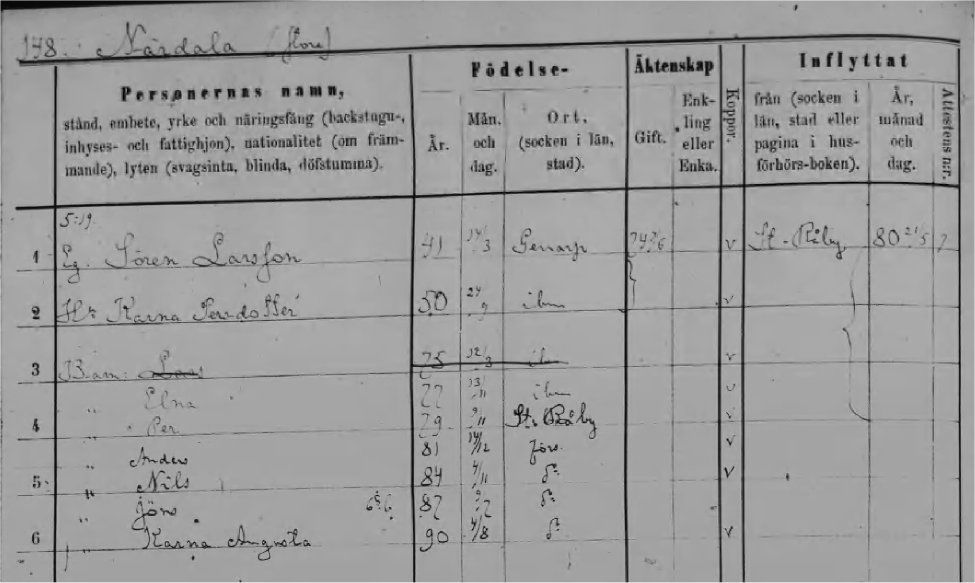 148. Närdala
Personernas namn,
stånd, embete, yrke och näringsfång (backstugu-,
inhyses- och fattighjon), nationalitet (om främ-
mande), lyten (svagsinta, blinda, döfstumma).
Födelse-
År.
Mån. och dag.
Ort, (socken i län, stad).
Äktenskap
Gift.
Enk- ling eller Enka.
Koppor.
Inflyttat
från (socken i län, stad eller pagina i hus- förhörs-boken).
År, månad och dag.
Attestens n:r.
5:19
1 Eg. Sören Larsson 41 14/3 Genarp v St. Råby 80 21/5
2 Hu Karna Persdotter 50 24/9 ibm v
3 Barn: Lars 75 12/3 ibm v
„ Elna 77 ibm v
4 „ Per 79 9/11 St. Råby v
„ Anders 81 14/12 förs. v
5 „ Nils 84 4/11 d:o v
„ Jöns 87 d:o
6 „ Karna Augusta 90 4/8 d:o v